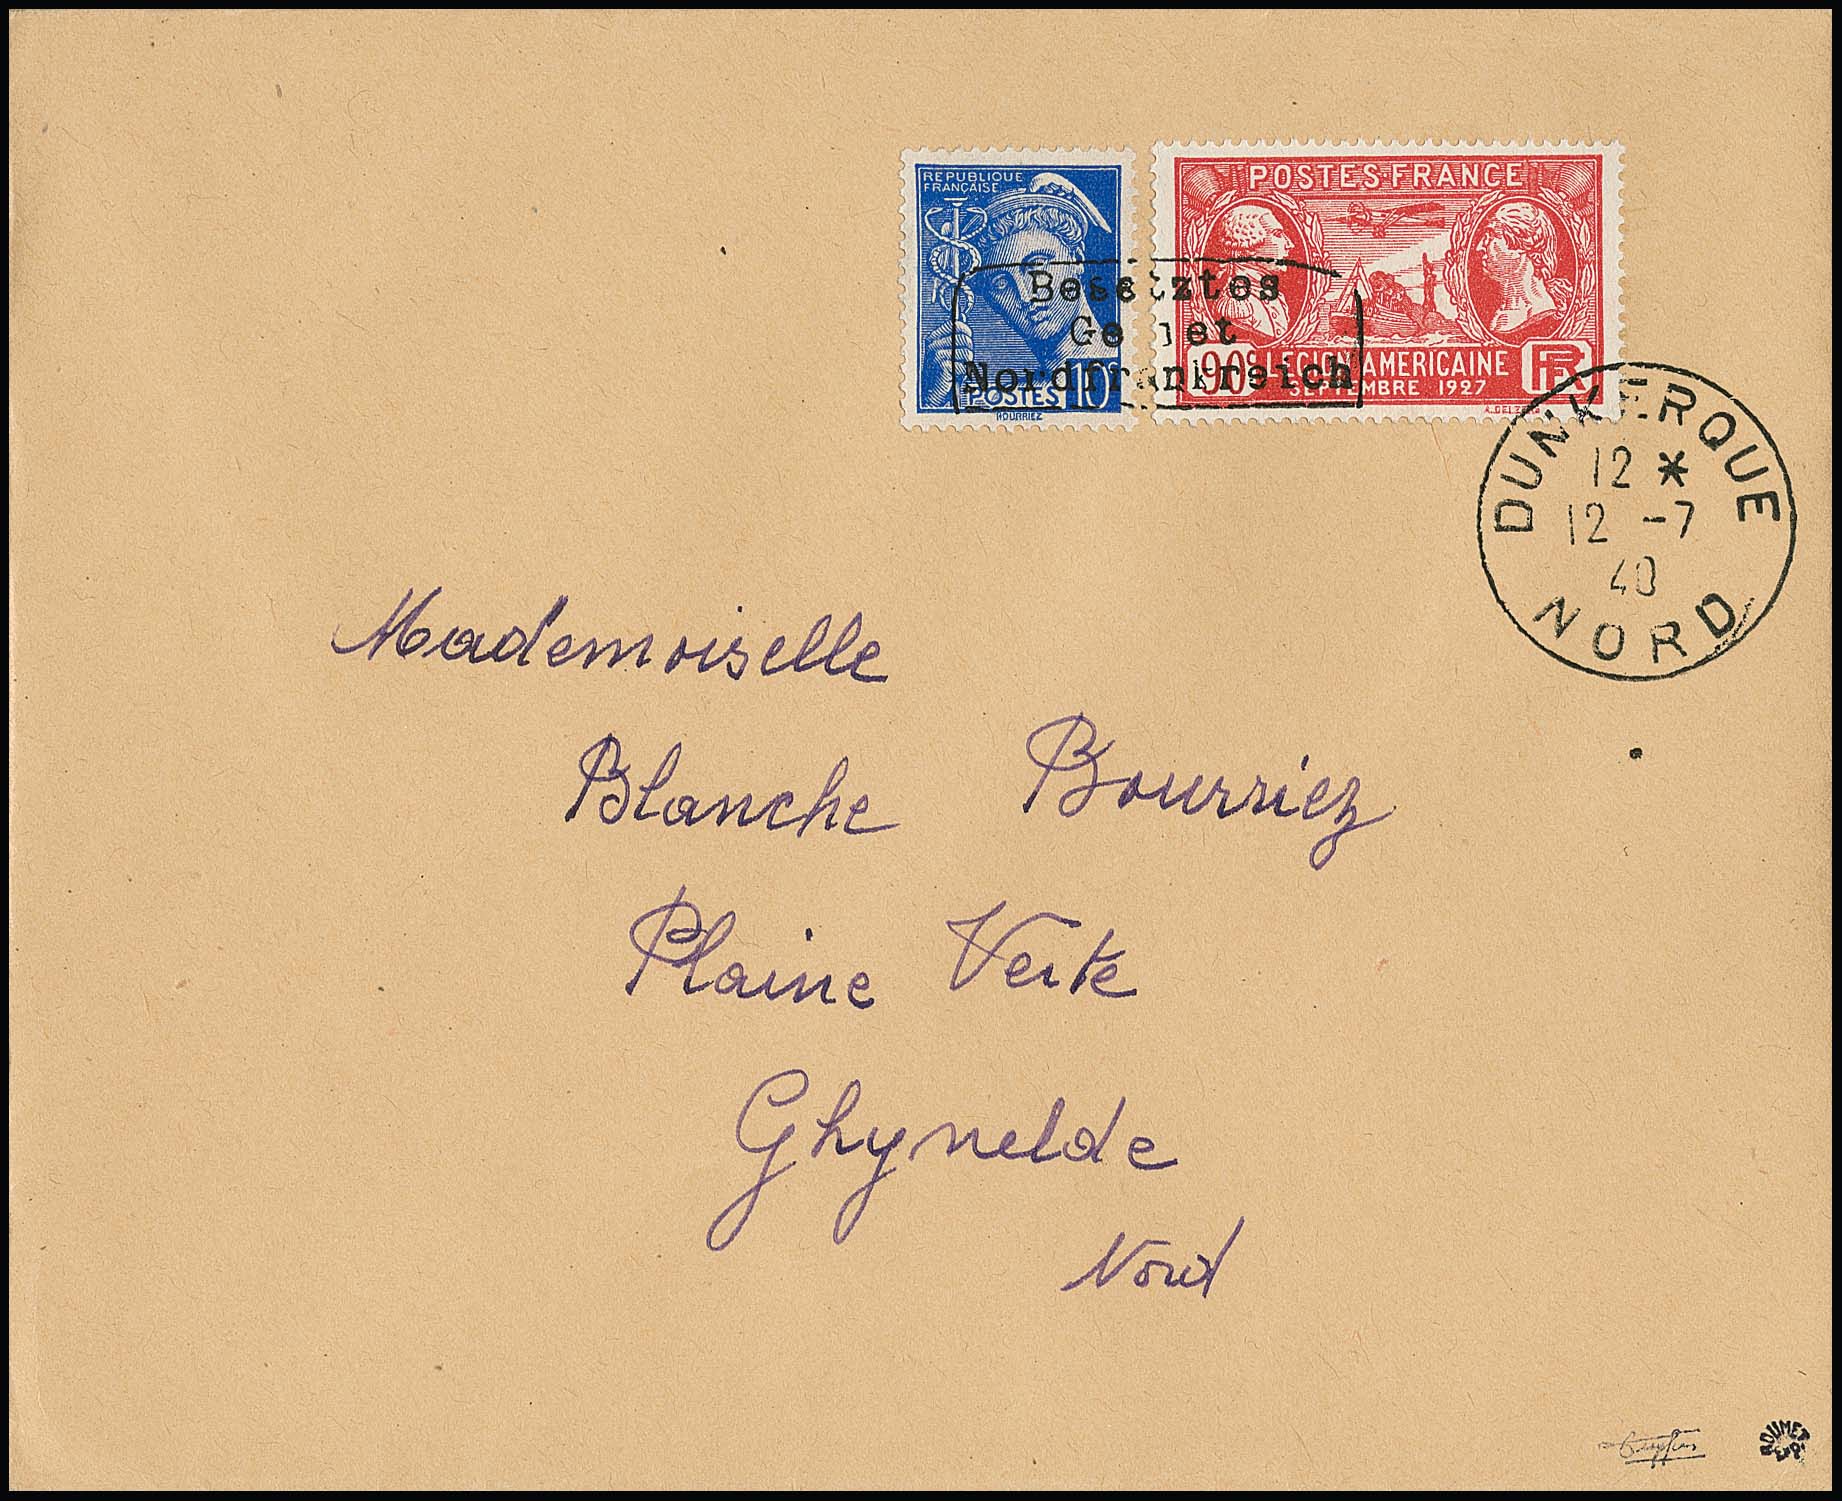 REPUBLIQUE
FRANÇAISE
POSTES 10c
HOURRIEZ
POSTES·FRANCE
90c LEGION AMERICAINE
SEPTEMBRE 1927
RF
A. DELZERS
Besetztes
Gebiet
Nordfrankreich
DUNKERQUE
12 *
12 -7
40
NORD
Mademoiselle
Blanche Bourriez
Plaine Verte
Ghynelde
Nord
ROUMET